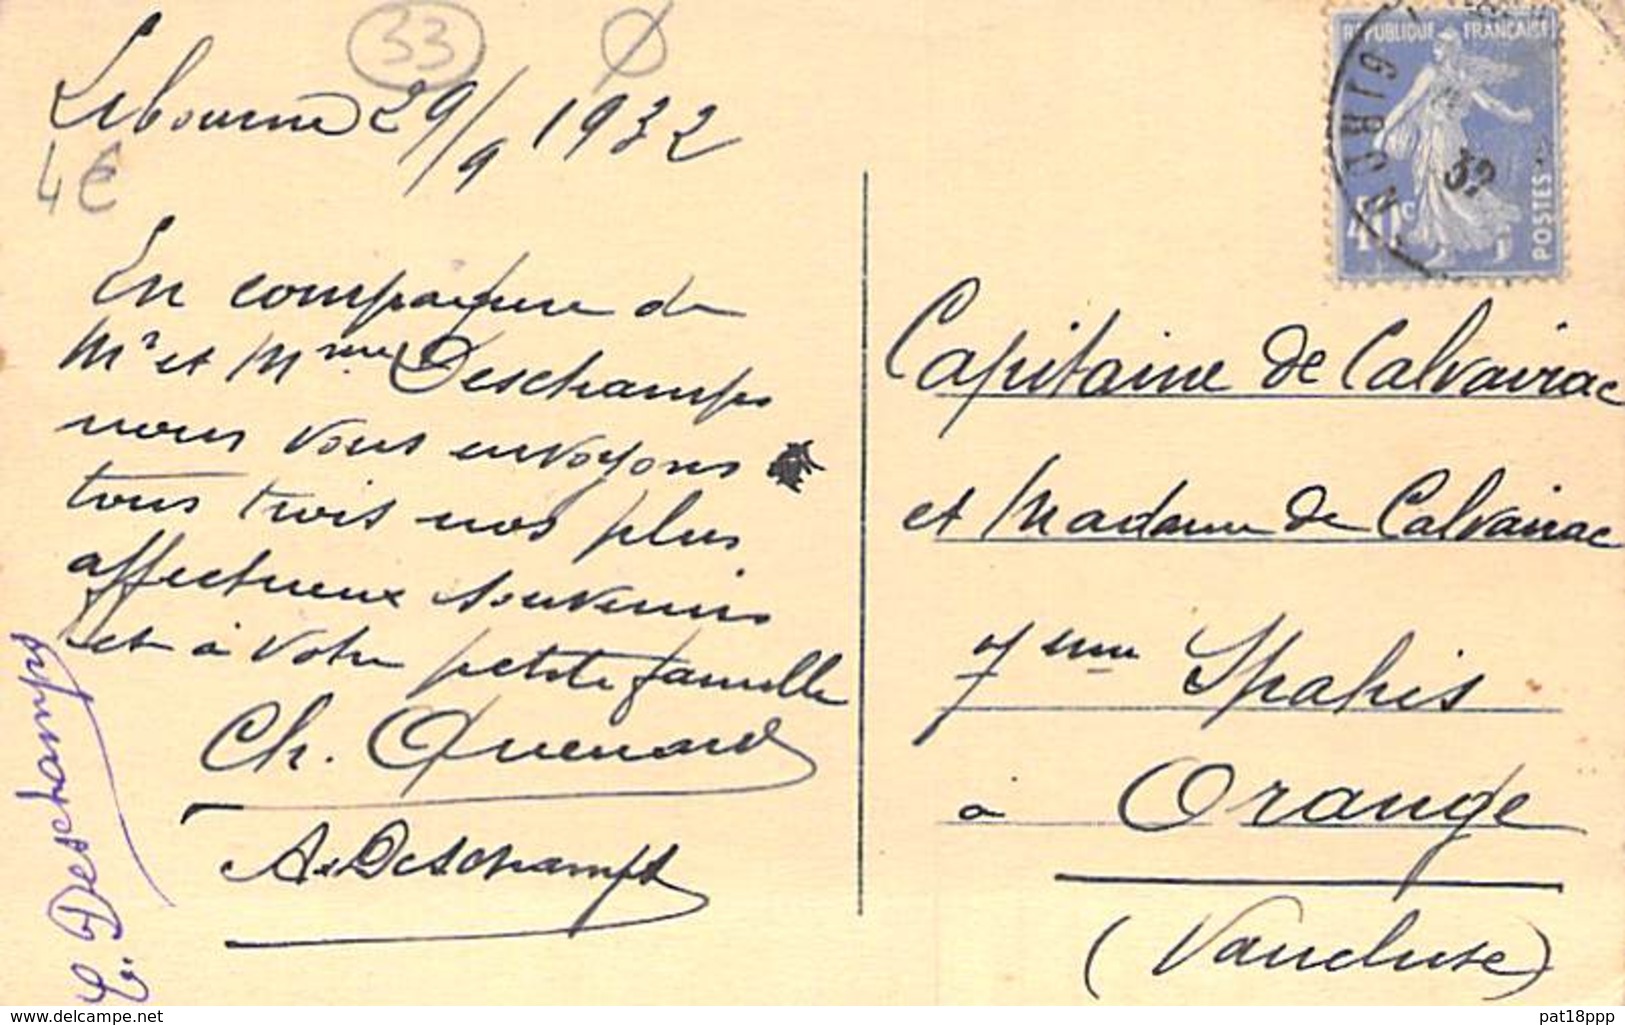 33
Libourne 29/9 1932
4€
En compagnie de
Mr et Mme Deschamps
nous vous envoyons
tous trois nos plus
affectueux souvenirs
et à votre petite famille
Ch. Quenard
A. Deschamps
E. Deschamps
REPUBLIQUE FRANÇAISE
GIRON
32
40c
POSTES
Capitaine de Calvairac
et Madame de Calvairac
7eme Spahis
à Orange
(Vaucluse)
delcampe.net
pat18ppp